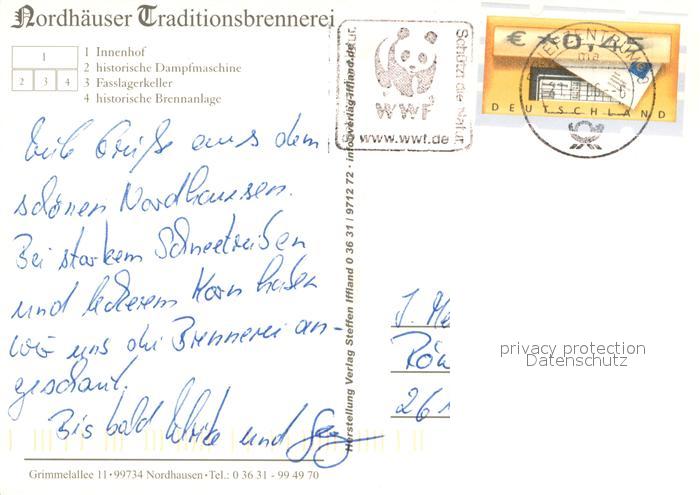 Nordhäuser Traditionsbrennerei
1 Innenhof
2 historische Dampfmaschine
3 Fasslagerkeller
4 historische Brennanlage
1
2 3 4
Viele Grüße aus dem
schönen Nordhausen.
Bei starkem Schneetreiben
und leckerem Korn haben
wir uns die Brennerei an-
geschaut.
Bis bald Ulrike und
Grimmelallee 11 • 99734 Nordhausen • Tel.: 0 36 31 - 99 49 70
Herstellung Verlag Steffen Iffland 0 36 31 / 9712 72 · info@verlag-iffland.de
WWF
www.wwf.de
Schützt die Natur
€ *0,45
DEUTSCHLAND
BRIEFZENTRUM
J. Me
Rön
261
privacy protection
Datenschutz